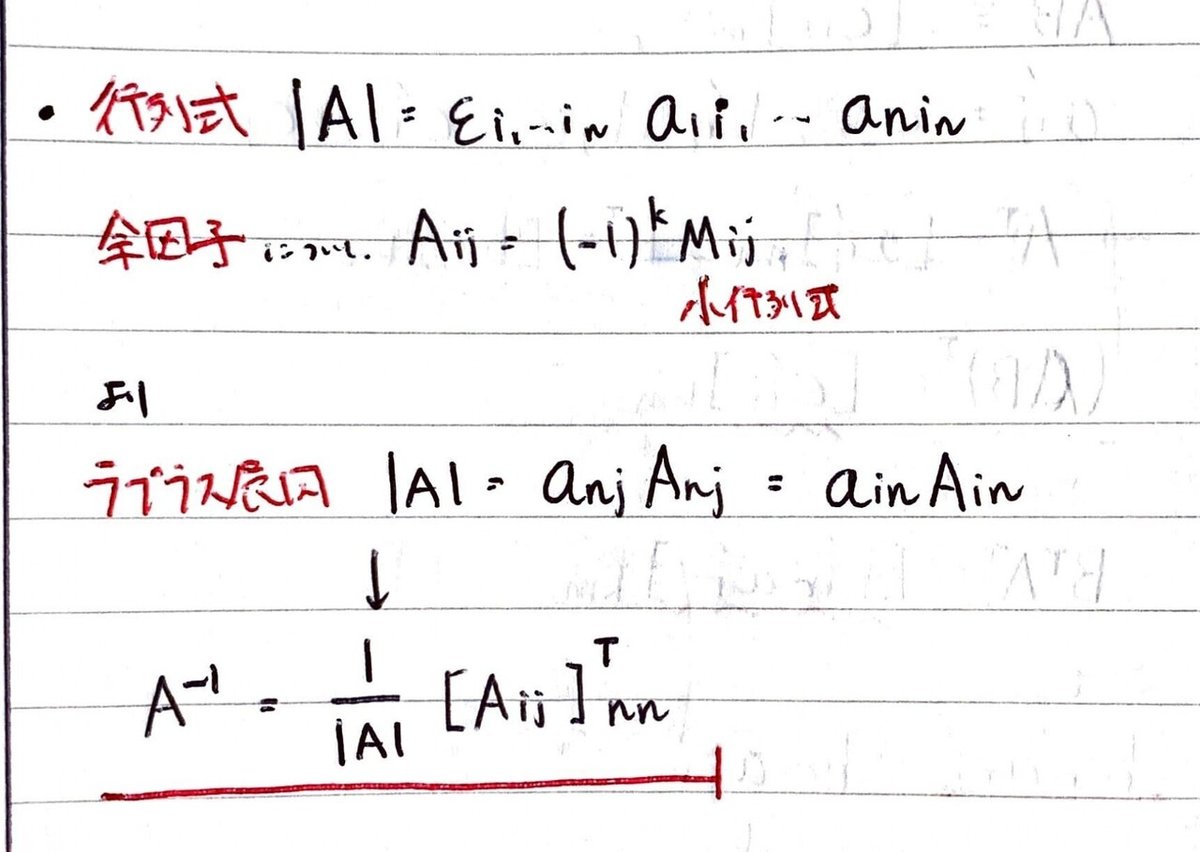 ・行列式 |A| = εi₁…iₙ a₁i₁ … aₙiₙ
余因子について. Aij = (-1)^k Mij
小行列式
より
ラプラス展開 |A| = anj Anj = ain Ain
↓
A⁻¹ = 1/|A| [Aij]ᵀnn